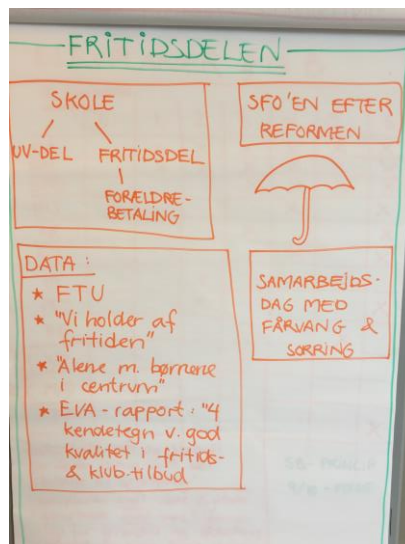 FRITIDSDELEN
SKOLE
UV-DEL FRITIDSDEL
FORÆLDRE-
BETALING
SFO'EN EFTER
REFORMEN
DATA:
* FTU
* "Vi holder af
fritiden"
* "Alene m. børnene
i centrum"
* EVA-rapport: "4
kendetegn v. god
kvalitet i fritids-
& klub-tilbud
SAMARBEJDS-
DAG MED
FÅRVANG &
SORRING